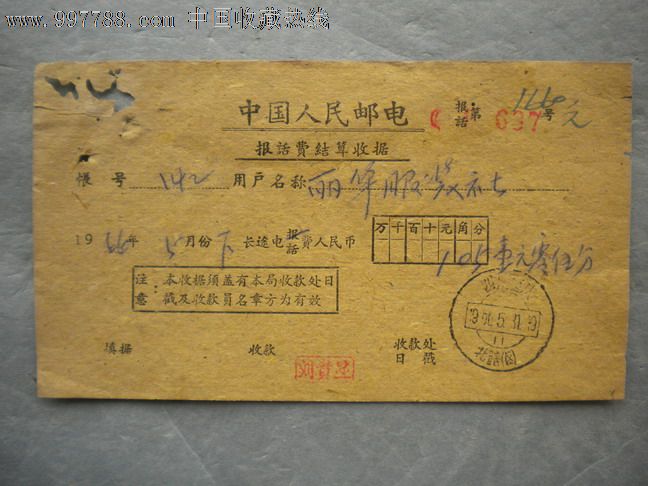 www.997788.com 中国收藏热线
中国人民邮电 报话 第 637 号
报話費結算收据
帳号 142 用户名称 丽华服装社
1966年5月份下 长途电报話費人民币 万千百十元角分
1.05 壹元零伍分
注意：本收据须盖有本局收款处日
戳及收款员名章方为有效
1966.5.31.19
11
填据 收款 收款处
日戳